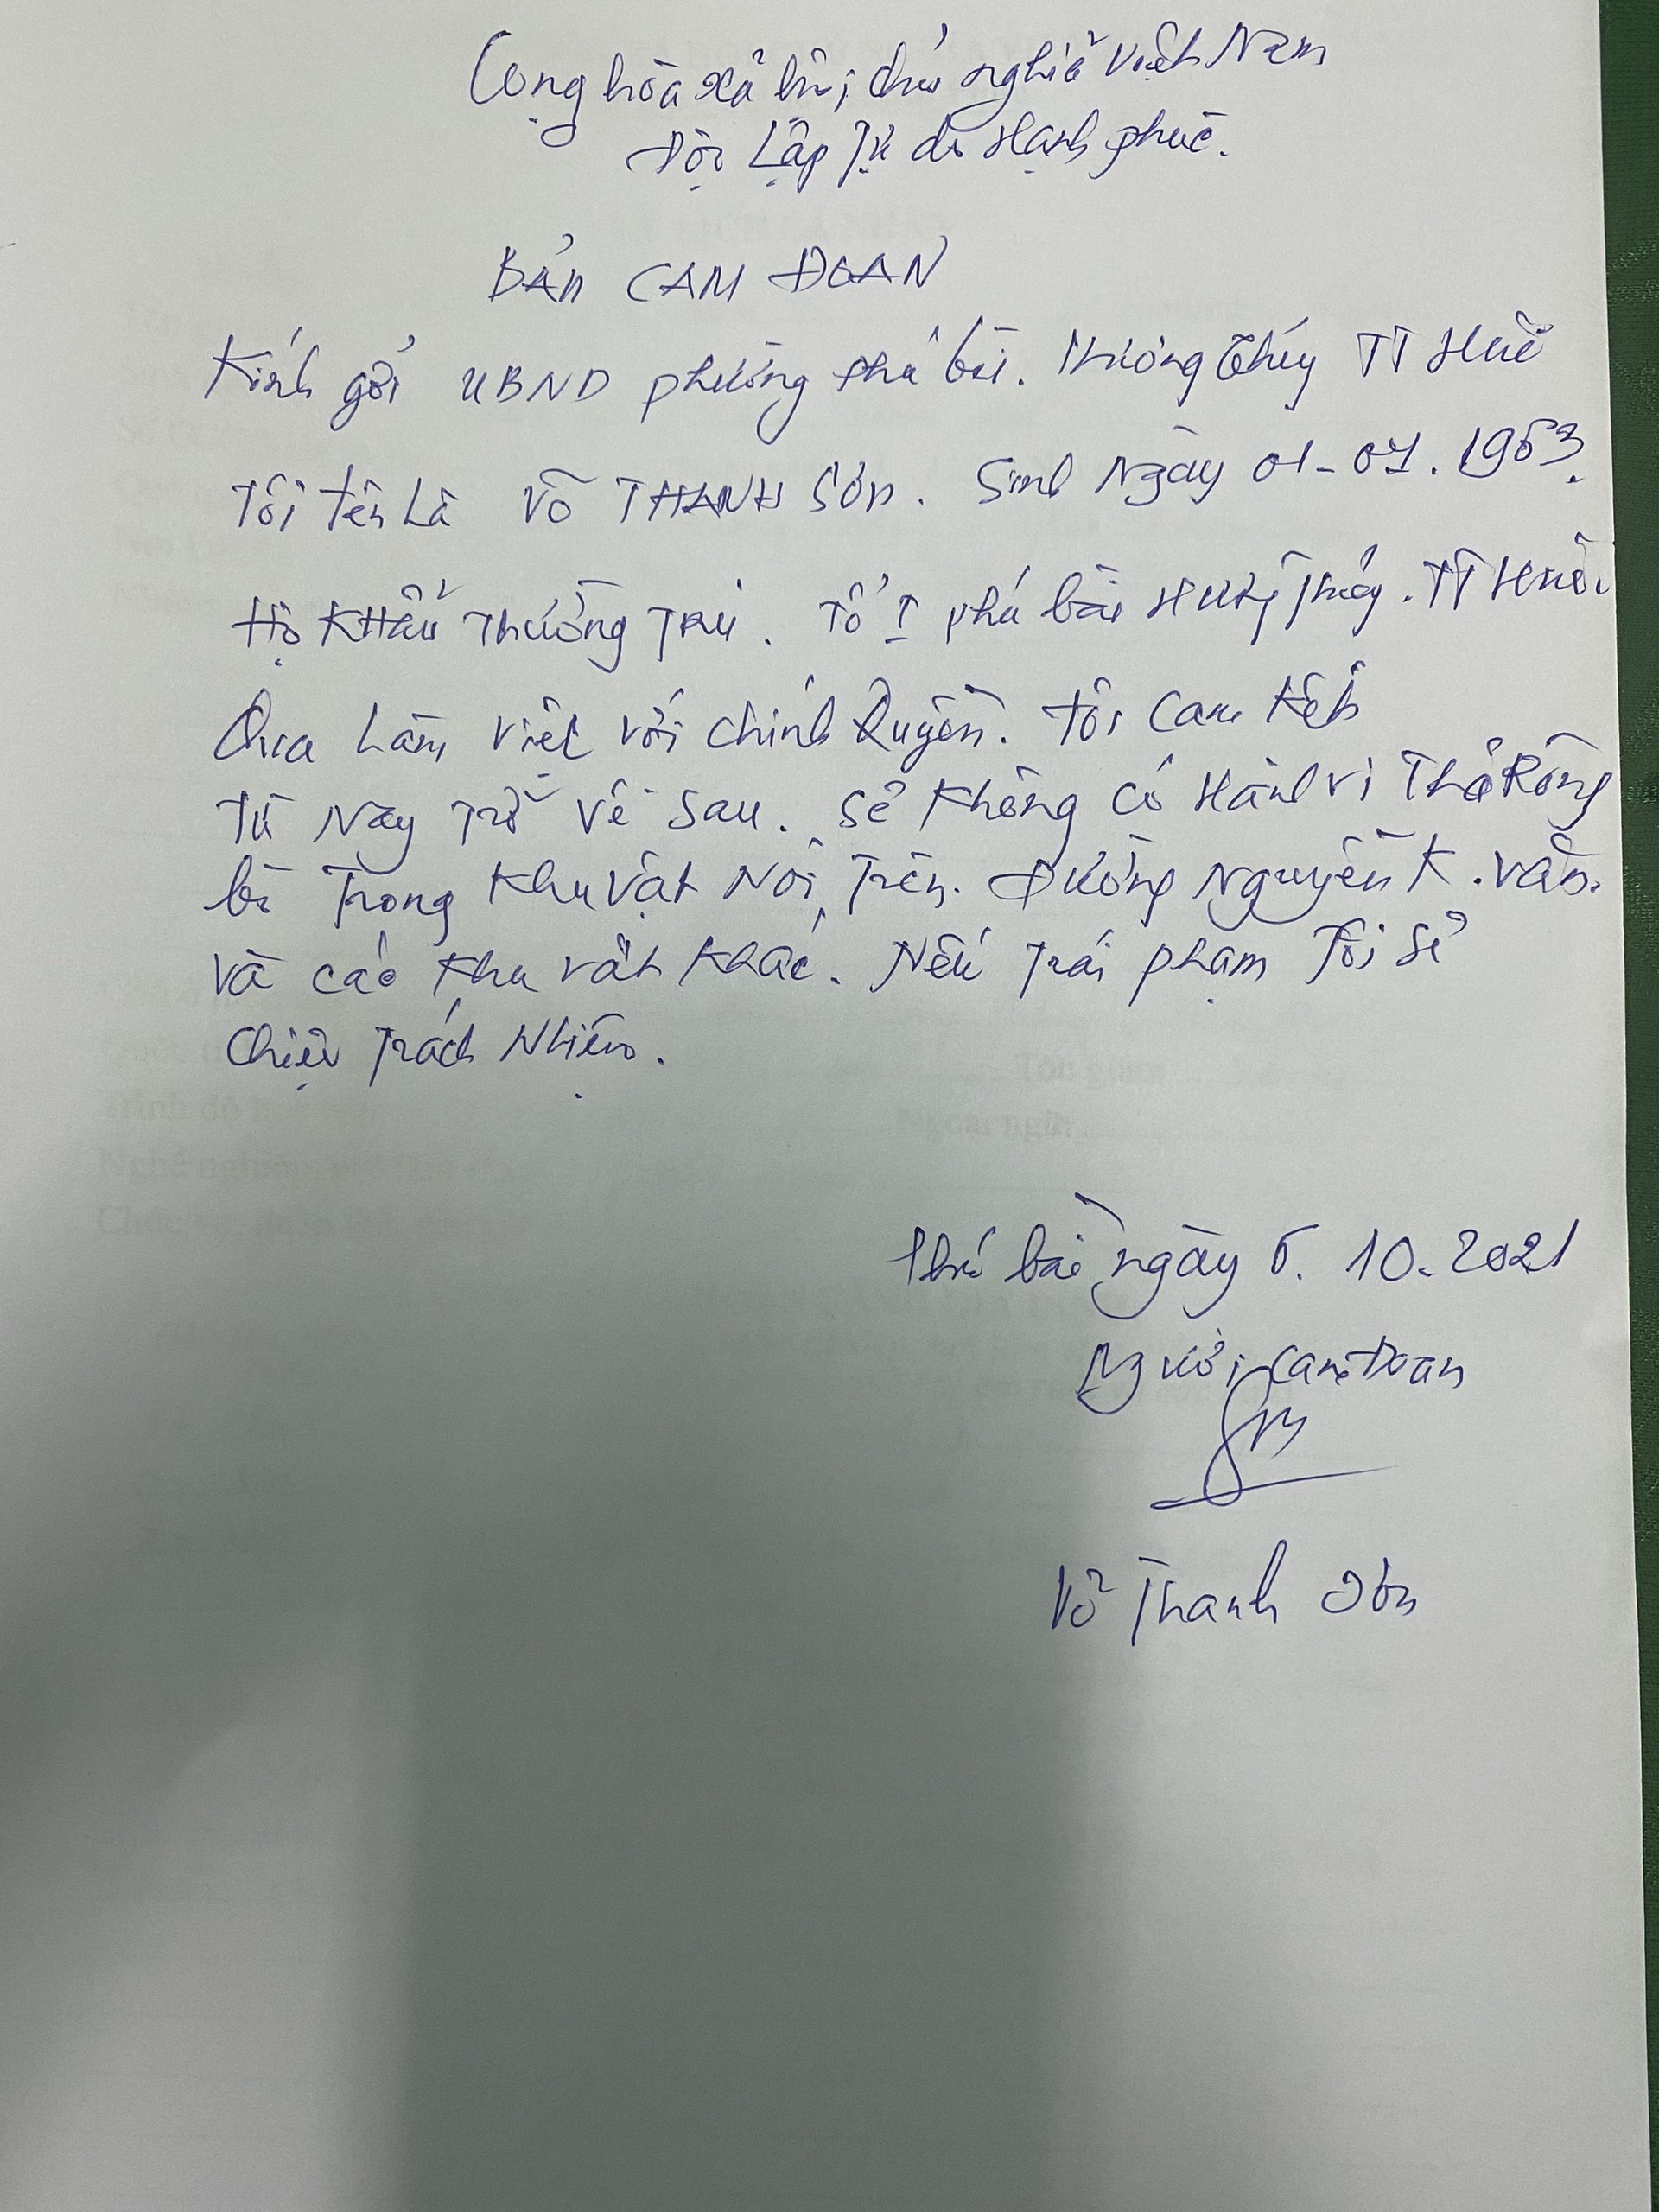 Cộng hòa xã hội chủ nghĩa Việt Nam
Độc Lập Tự do Hạnh phúc.
BẢN CAM ĐOAN
Kính gởi UBND phường phú bài. Hương thủy TT Huế
Tôi tên Là VÕ THANH SơN. Sinh Ngày 01-07.1953.
Hộ KHẩu Thường TRú. Tổ I phú bài Hương Thủy. TT Huế.
Qua Làm việc với chính Quyền. Tôi cam Kết
Từ Nay Trở về Sau. Sẽ Không có Hành vi Thả Rông
bò Trong Khu vật Nói Trên. Đường Nguyễn K. Văn.
Và các Khu vật Khác. Nếu Trái phạm Tôi Sẽ
Chiệu Trách Nhiệm.
Phú bài ngày 6. 10. 2021
Người cam Đoan
Võ Thanh Sơn